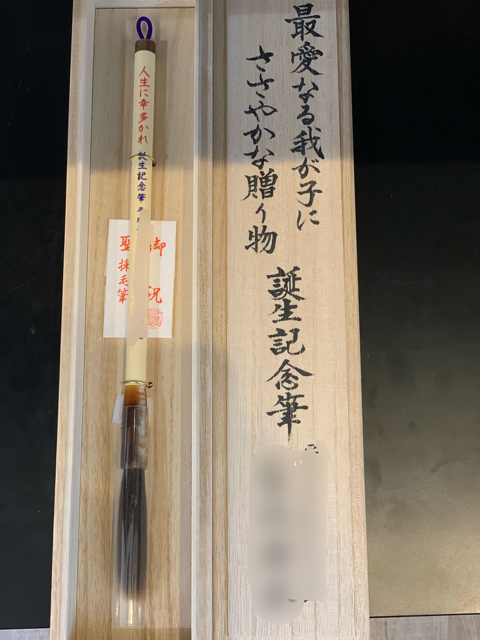 最愛なる我が子に
ささやかな贈り物
誕生記念筆
人生に幸多かれ
誕生記念筆
御祝
聖採毛筆